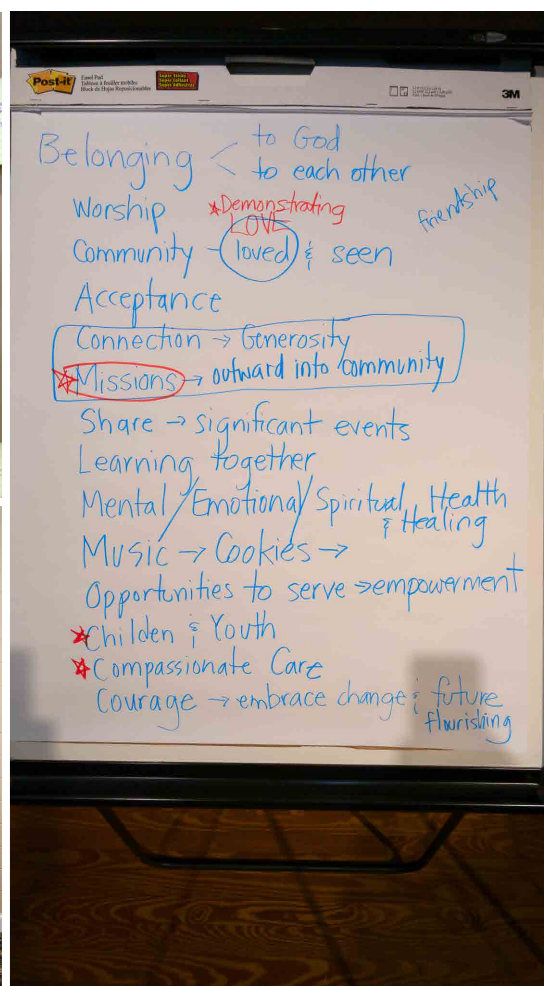 Post-it
Easel Pad
Tableau à feuilles mobiles
Block de Hojas Reposicionables
Super Sticky
3M
Belonging < to God
to each other
Worship
*Demonstrating
LOVE
friendship
Community - loved & seen
Acceptance
Connection → Generosity
Missions → outward into community
Share → significant events
Learning together
Mental / Emotional / Spiritual Health
& Healing
Music → Cookies →
Opportunities to serve → empowerment
Childen & Youth
Compassionate Care
Courage → embrace change & future
flourishing